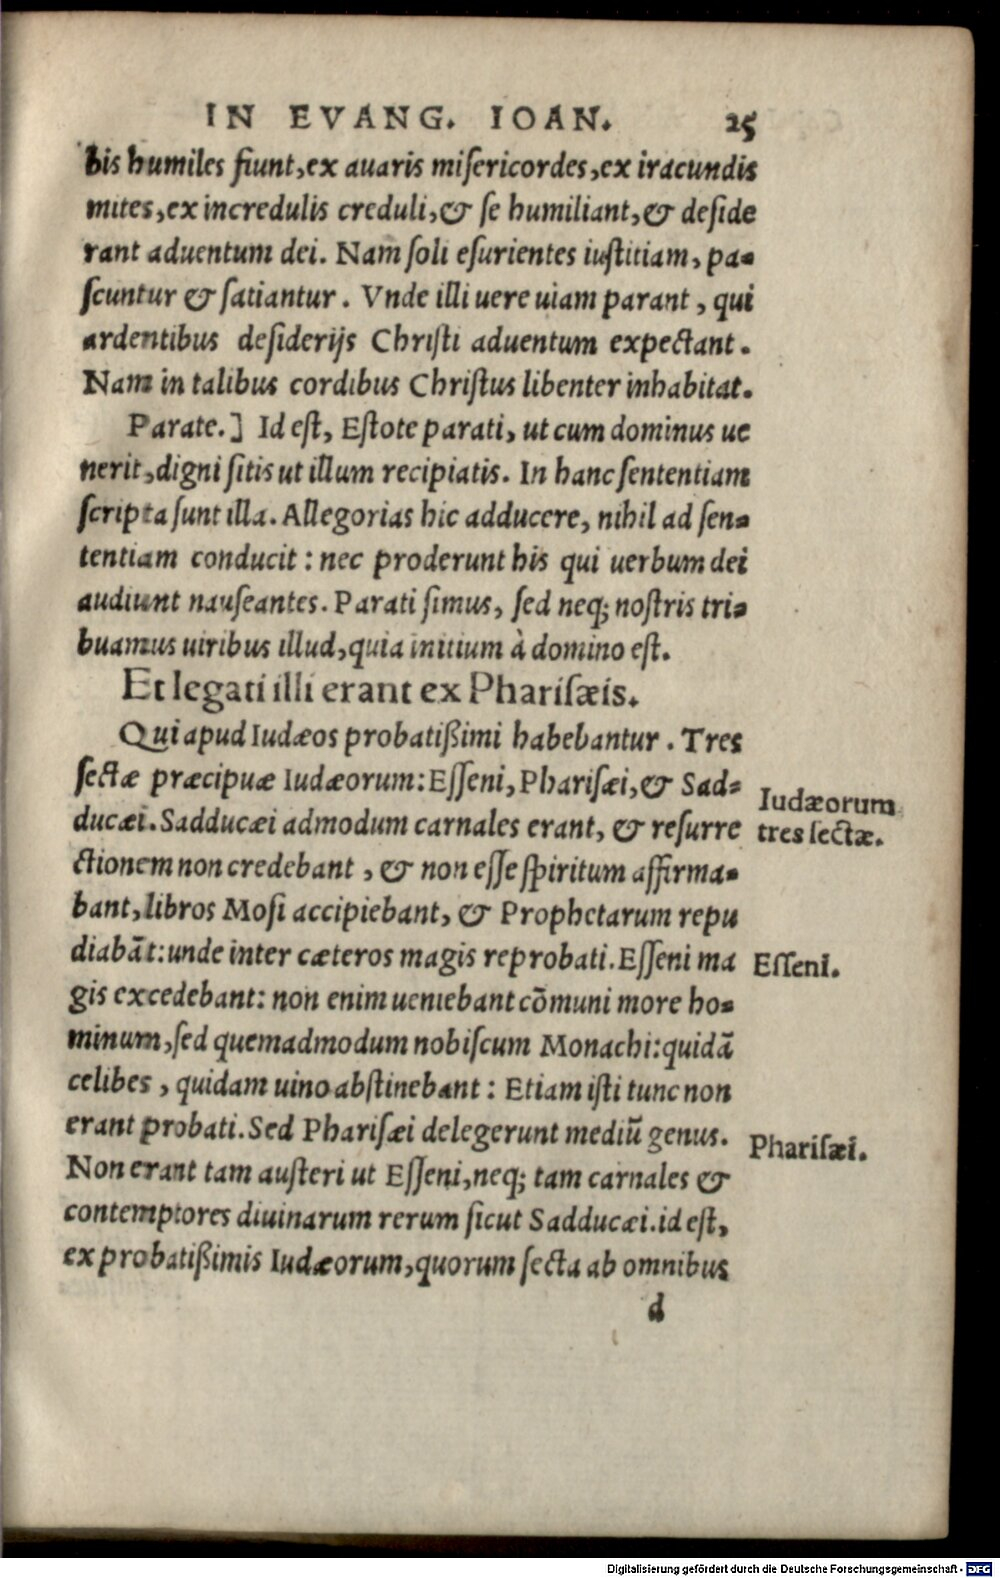 IN EVANG. IOAN. 25
bis humiles fiunt, ex auaris miſericordes, ex iracundis
mites, ex incredulis creduli, & ſe humiliant, & deſide
rant aduentum dei. Nam ſoli eſurientes iuſtitiam, pa-
ſcuntur & ſatiantur. Vnde illi uere uiam parant, qui
ardentibus deſiderijs Chriſti aduentum expectant.
Nam in talibus cordibus Chriſtus libenter inhabitat.
Parate.] Id eſt, Eſtote parati, ut cum dominus ue
nerit, digni ſitis ut illum recipiatis. In hanc ſententiam
ſcripta ſunt illa. Allegorias hic adducere, nihil ad ſen-
tentiam conducit: nec proderunt his qui uerbum dei
audiunt nauſeantes. Parati ſimus, ſed neq; noſtris tri-
buamus uiribus illud, quia initium à domino eſt.
Et legati illi erant ex Phariſæis.
Qui apud Iudæos probatißimi habebantur. Tres
ſectæ præcipuæ Iudæorum: Eſſeni, Phariſæi, & Sad-
Iudæorum
ducæi. Sadducæi admodum carnales erant, & reſurre
tres ſectæ.
ctionem non credebant, & non eſſe ſpiritum affirma-
bant, libros Moſi accipiebant, & Prophetarum repu
diabāt: unde inter cæteros magis reprobati. Eſſeni ma
Eſſeni.
gis excedebant: non enim ueniebant cōmuni more ho-
minum, ſed quemadmodum nobiſcum Monachi: quidā
celibes, quidam uino abſtinebant: Etiam iſti tunc non
erant probati. Sed Phariſæi delegerunt mediū genus.
Phariſæi.
Non erant tam auſteri ut Eſſeni, neq; tam carnales &
contemptores diuinarum rerum ſicut Sadducæi. id eſt,
ex probatißimis Iudæorum, quorum ſecta ab omnibus
d
Digitalisierung gefördert durch die Deutsche Forschungsgemeinschaft - DFG